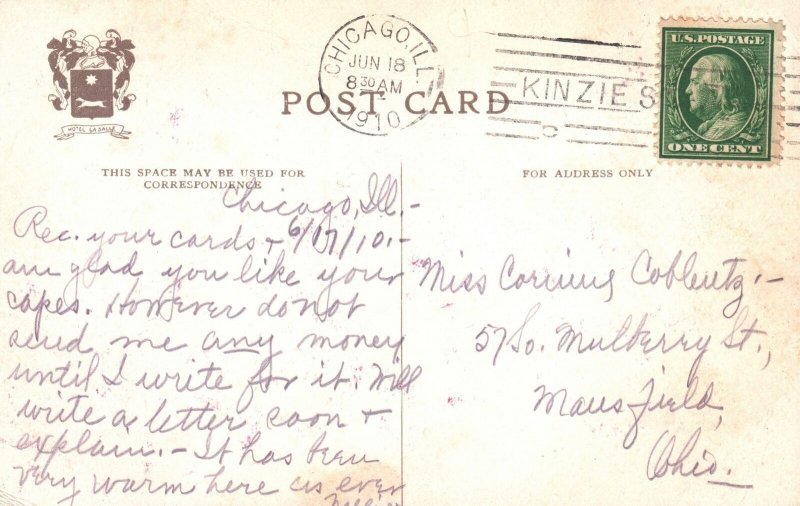 HOTEL LA SALLE
CHICAGO, ILL.
JUN 18
8 30 AM
1910
KINZIE S
U.S. POSTAGE
ONE CENT
POST CARD
THIS SPACE MAY BE USED FOR
CORRESPONDENCE
FOR ADDRESS ONLY
Chicago, Ill.-
Rec. your cards + 6/17/10.-
am glad you like your
capes. However do not
send me any money
until I write for it. Will
write a letter soon +
explain.- It has been
very warm here as ever
Miss Corinne Coblentz,-
57 So. Mulberry St.,
Mansfield,
Ohio.